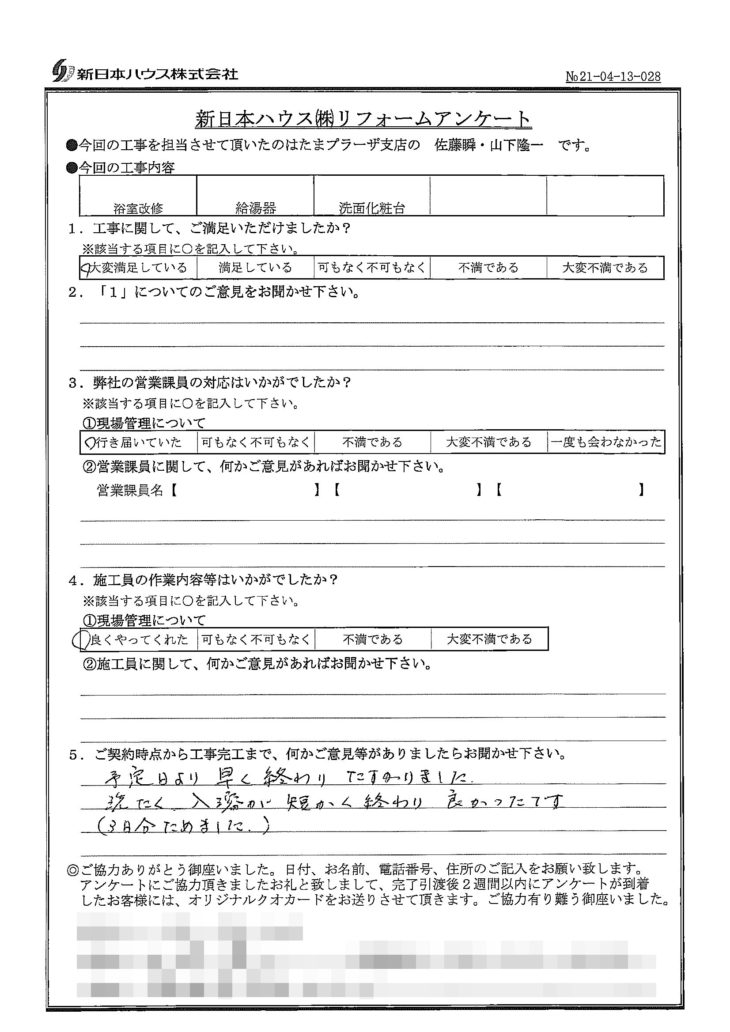 新日本ハウス株式会社
№21-04-13-028
新日本ハウス㈱リフォームアンケート
●今回の工事を担当させて頂いたのはたまプラーザ支店の 佐藤瞬・山下隆一 です。
●今回の工事内容
浴室改修 給湯器 洗面化粧台
1．工事に関して、ご満足いただけましたか？
※該当する項目に○を記入して下さい。
大変満足している 満足している 可もなく不可もなく 不満である 大変不満である
2．「1」についてのご意見をお聞かせ下さい。
3．弊社の営業課員の対応はいかがでしたか？
※該当する項目に○を記入して下さい。
①現場管理について
行き届いていた 可もなく不可もなく 不満である 大変不満である 一度も会わなかった
②営業課員に関して、何かご意見があればお聞かせ下さい。
営業課員名【 】【 】【 】
4．施工員の作業内容等はいかがでしたか？
※該当する項目に○を記入して下さい。
①現場管理について
良くやってくれた 可もなく不可もなく 不満である 大変不満である
②施工員に関して、何かご意見があればお聞かせ下さい。
5．ご契約時点から工事完工まで、何かご意見等がありましたらお聞かせ下さい。
予定日より 早く終わり たすかりました.
洗たく 入浴が 短かく終わり 良かったです
(3日分ためました.)
◎ご協力ありがとう御座いました。日付、お名前、電話番号、住所のご記入をお願い致します。
アンケートにご協力頂きましたお礼と致しまして、完了引渡後２週間以内にアンケートが到着
したお客様には、オリジナルクオカードをお送りさせて頂きます。ご協力有り難う御座いました。